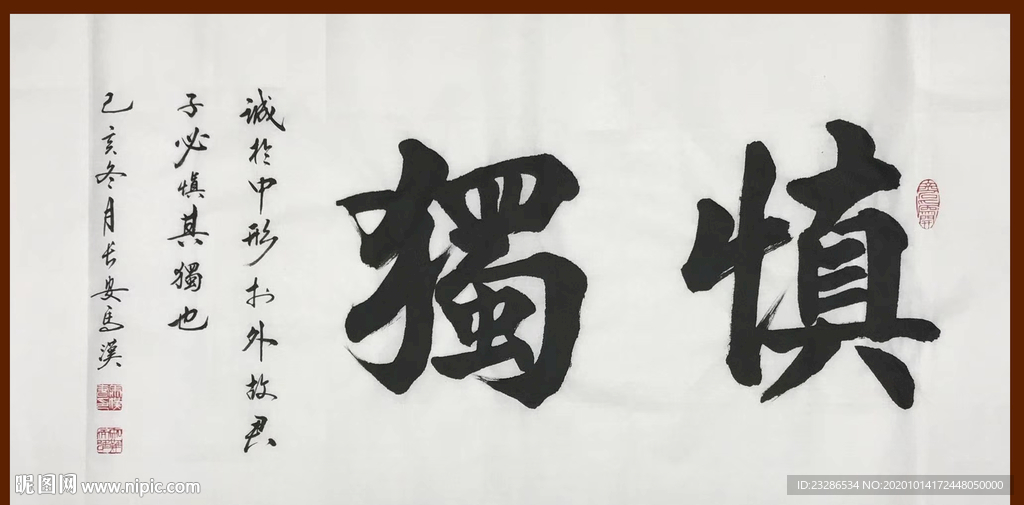 慎獨
誠於中形於外故君
子必慎其獨也
己亥冬月长安馬漢
昵图网 www.nipic.com
ID:23286534 NO:20201014172448050000